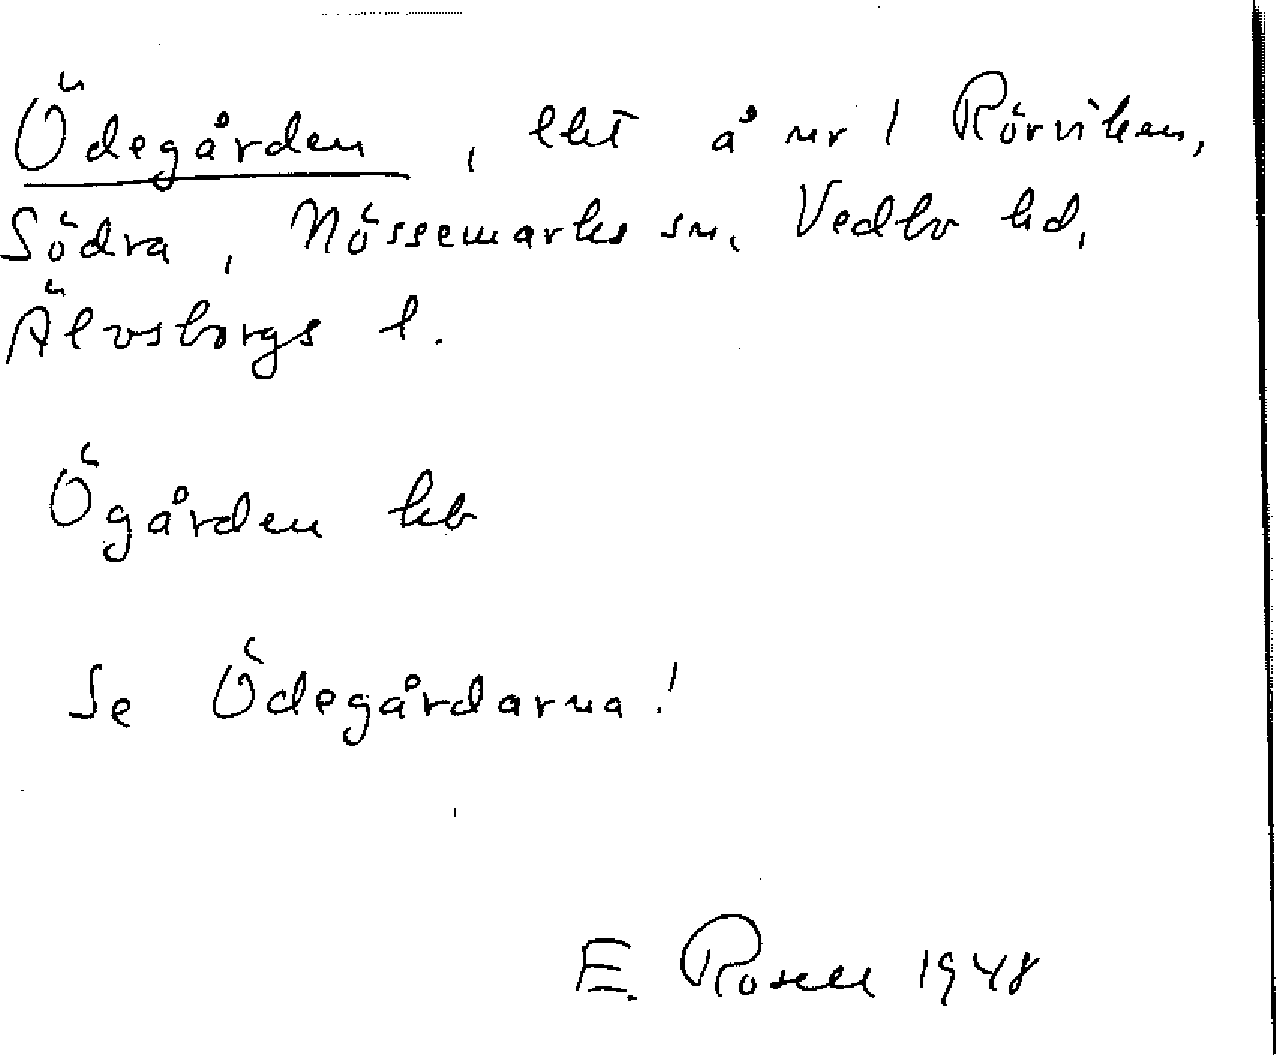 Ödegården, lht å nr 1 Rörviken,
Södra, Nössemarks sn. Vedbo hd,
Älvsborgs l.
Ögården kb
Se Ödegårdarna!
E. Rosell 1948